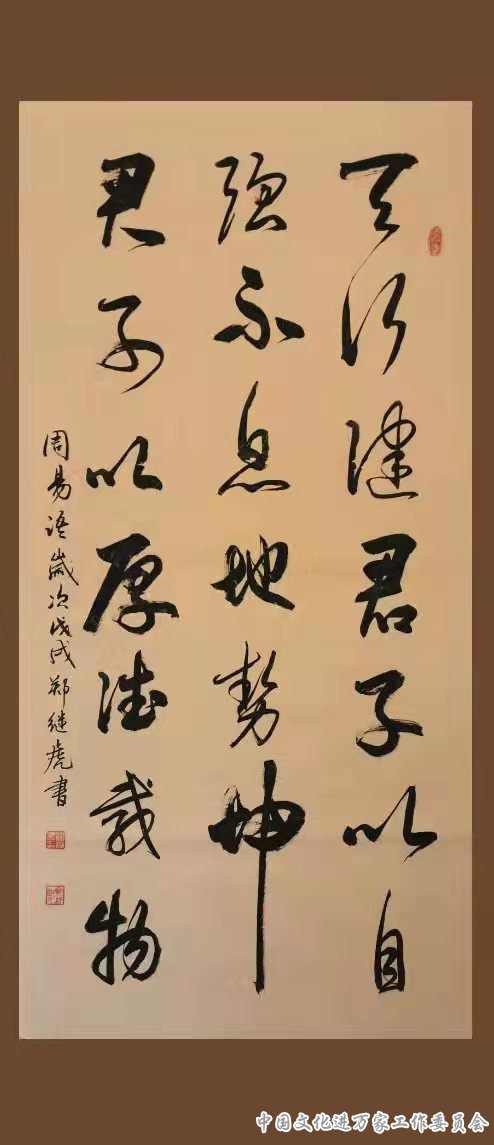 天行健君子以自
强不息地势坤
君子以厚德载物
周易语岁次戊戌郑继虎书
中国文化进万家工作委员会